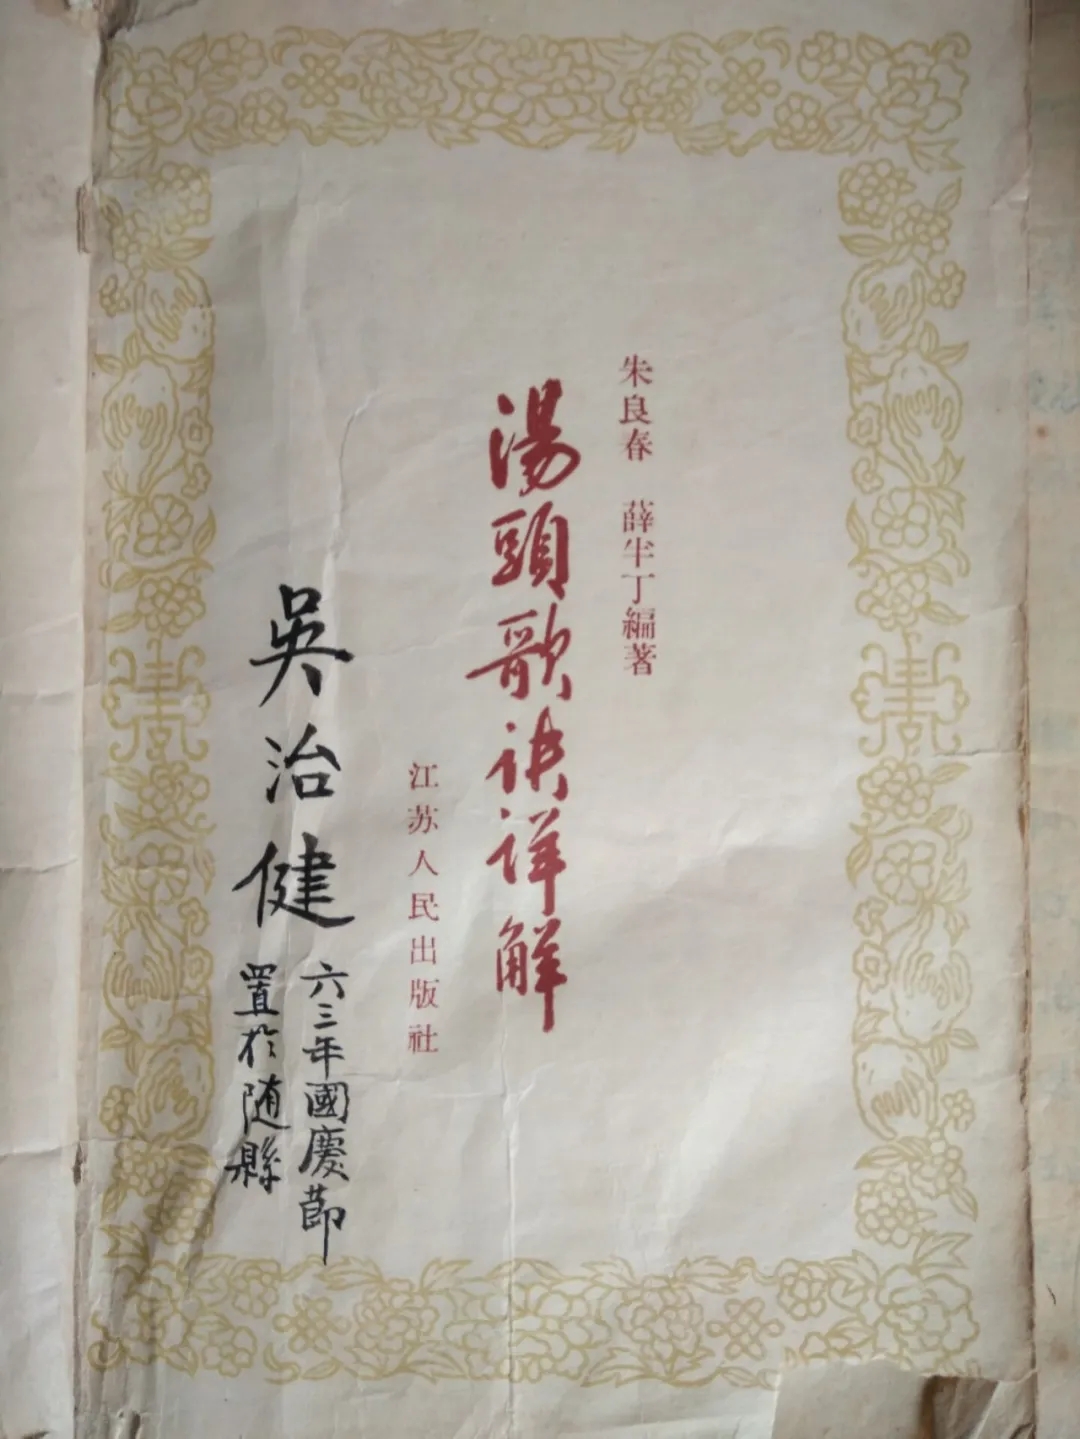 朱良春 薛半丁編著
湯頭歌訣詳解
江苏人民出版社
吳治健
六三年國慶節
置於随縣